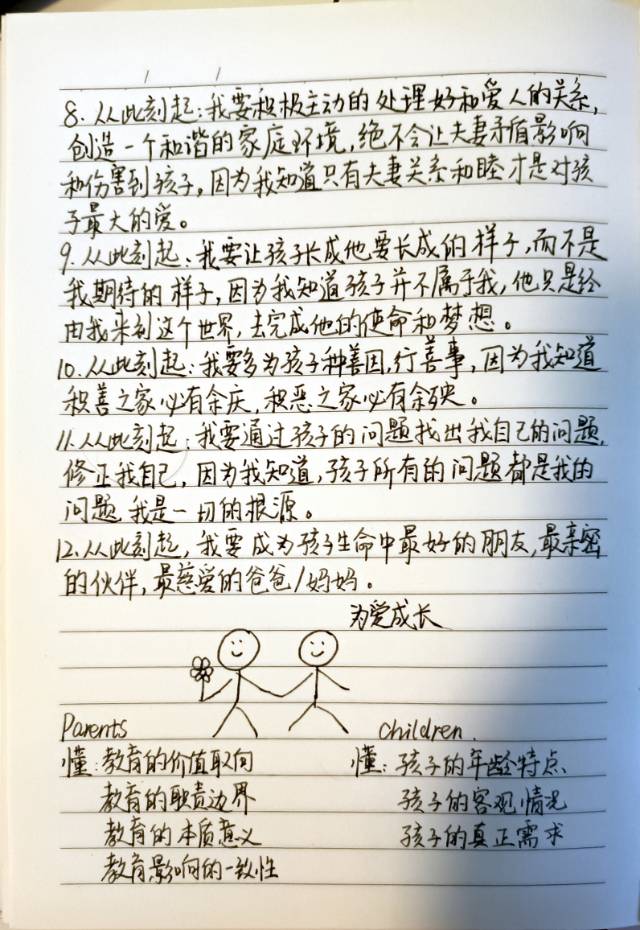 8. 从此刻起:我要积极主动的处理好和爱人的关系,
创造一个和谐的家庭环境,绝不会让夫妻矛盾影响
和伤害到孩子,因为我知道只有夫妻关系和睦才是对孩
子最大的爱。
9. 从此刻起:我要让孩子长成他要长成的样子,而不是
我期待的样子,因为我知道孩子并不属于我,他只是经
由我来到这个世界,去完成他的使命和梦想。
10. 从此刻起:我要多为孩子种善因,行善事,因为我知道
积善之家必有余庆,积恶之家必有余殃。
11. 从从此刻起:我要通过孩子的问题找出我自己的问题,
修正我自己,因为我知道,孩子所有的问题都是我的
问题,我是一切的根源。
12. 从此刻起,我要成为孩子生命中最好的朋友,最亲密
的伙伴,最慈爱的爸爸/妈妈。
为爱成长
Parents children.
懂:教育的价值取向 懂:孩子的年龄特点
教育的职责边界 孩子的客观情况
教育的本质意义 孩子的真正需求
教育影响的一致性